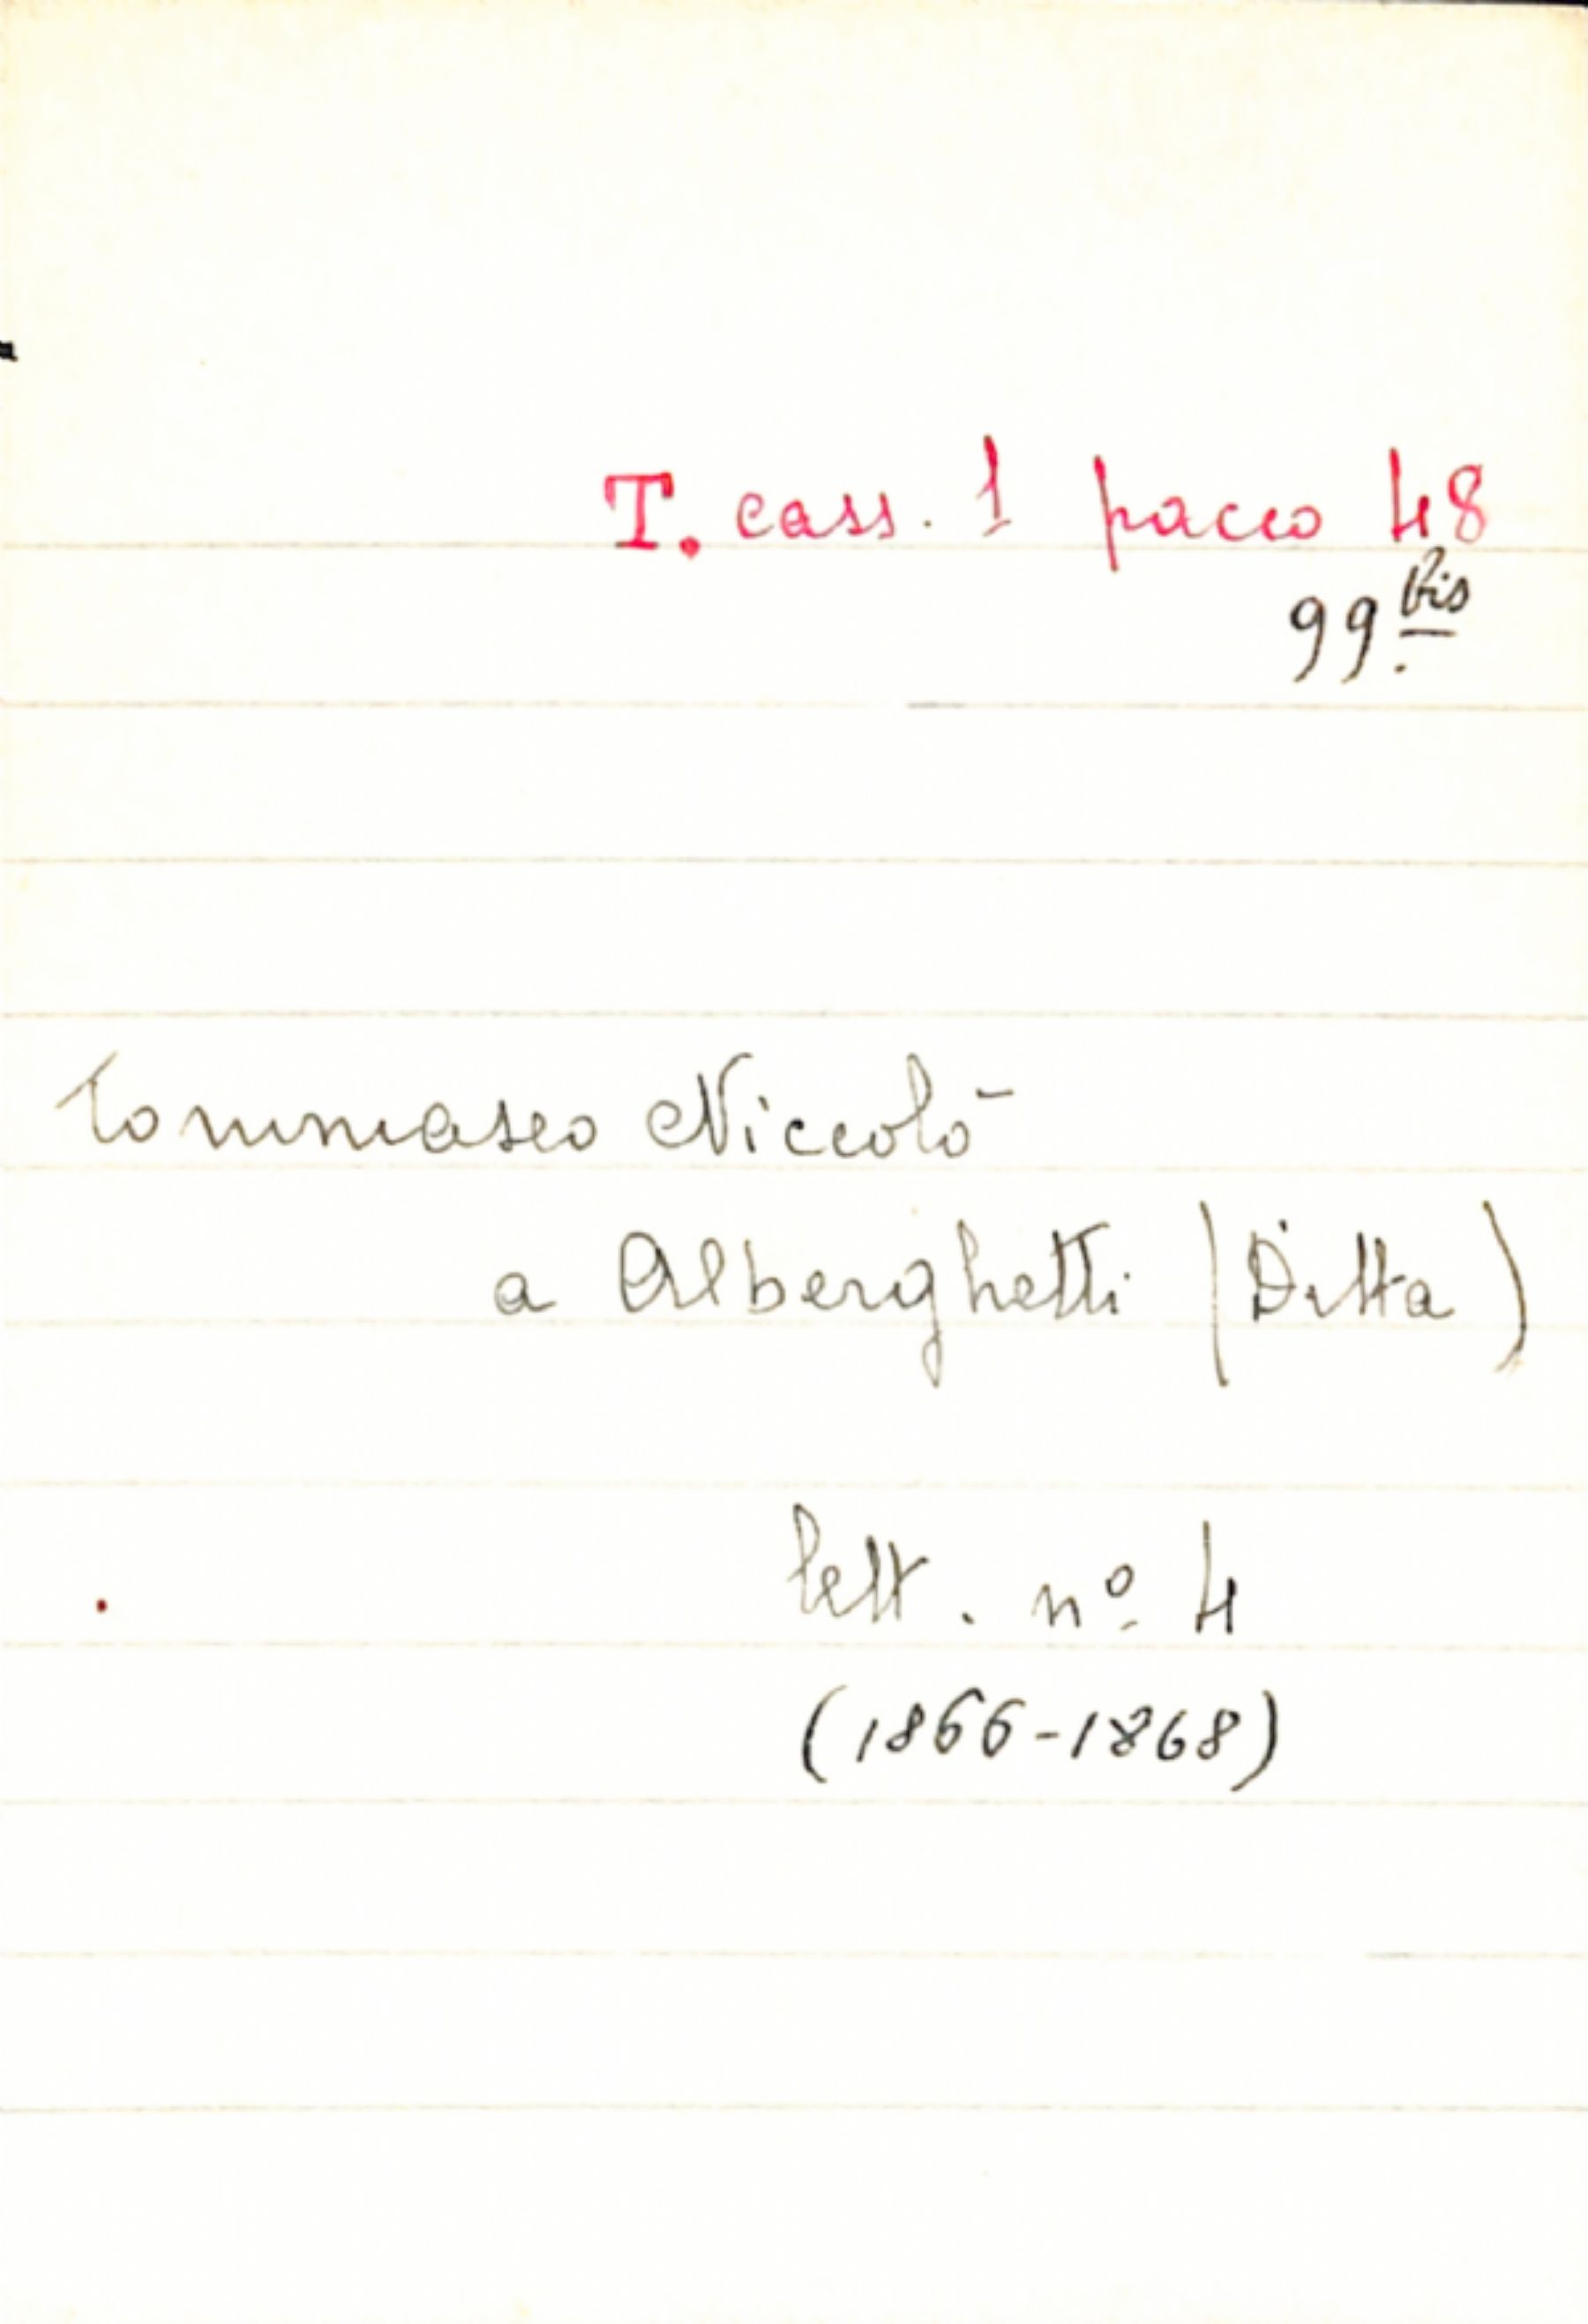 T. cass. 1 pacco 48
99 bis
Tommaseo Niccolò
a Alberghetti (Ditta)
lett. nº 4
(1866-1868)